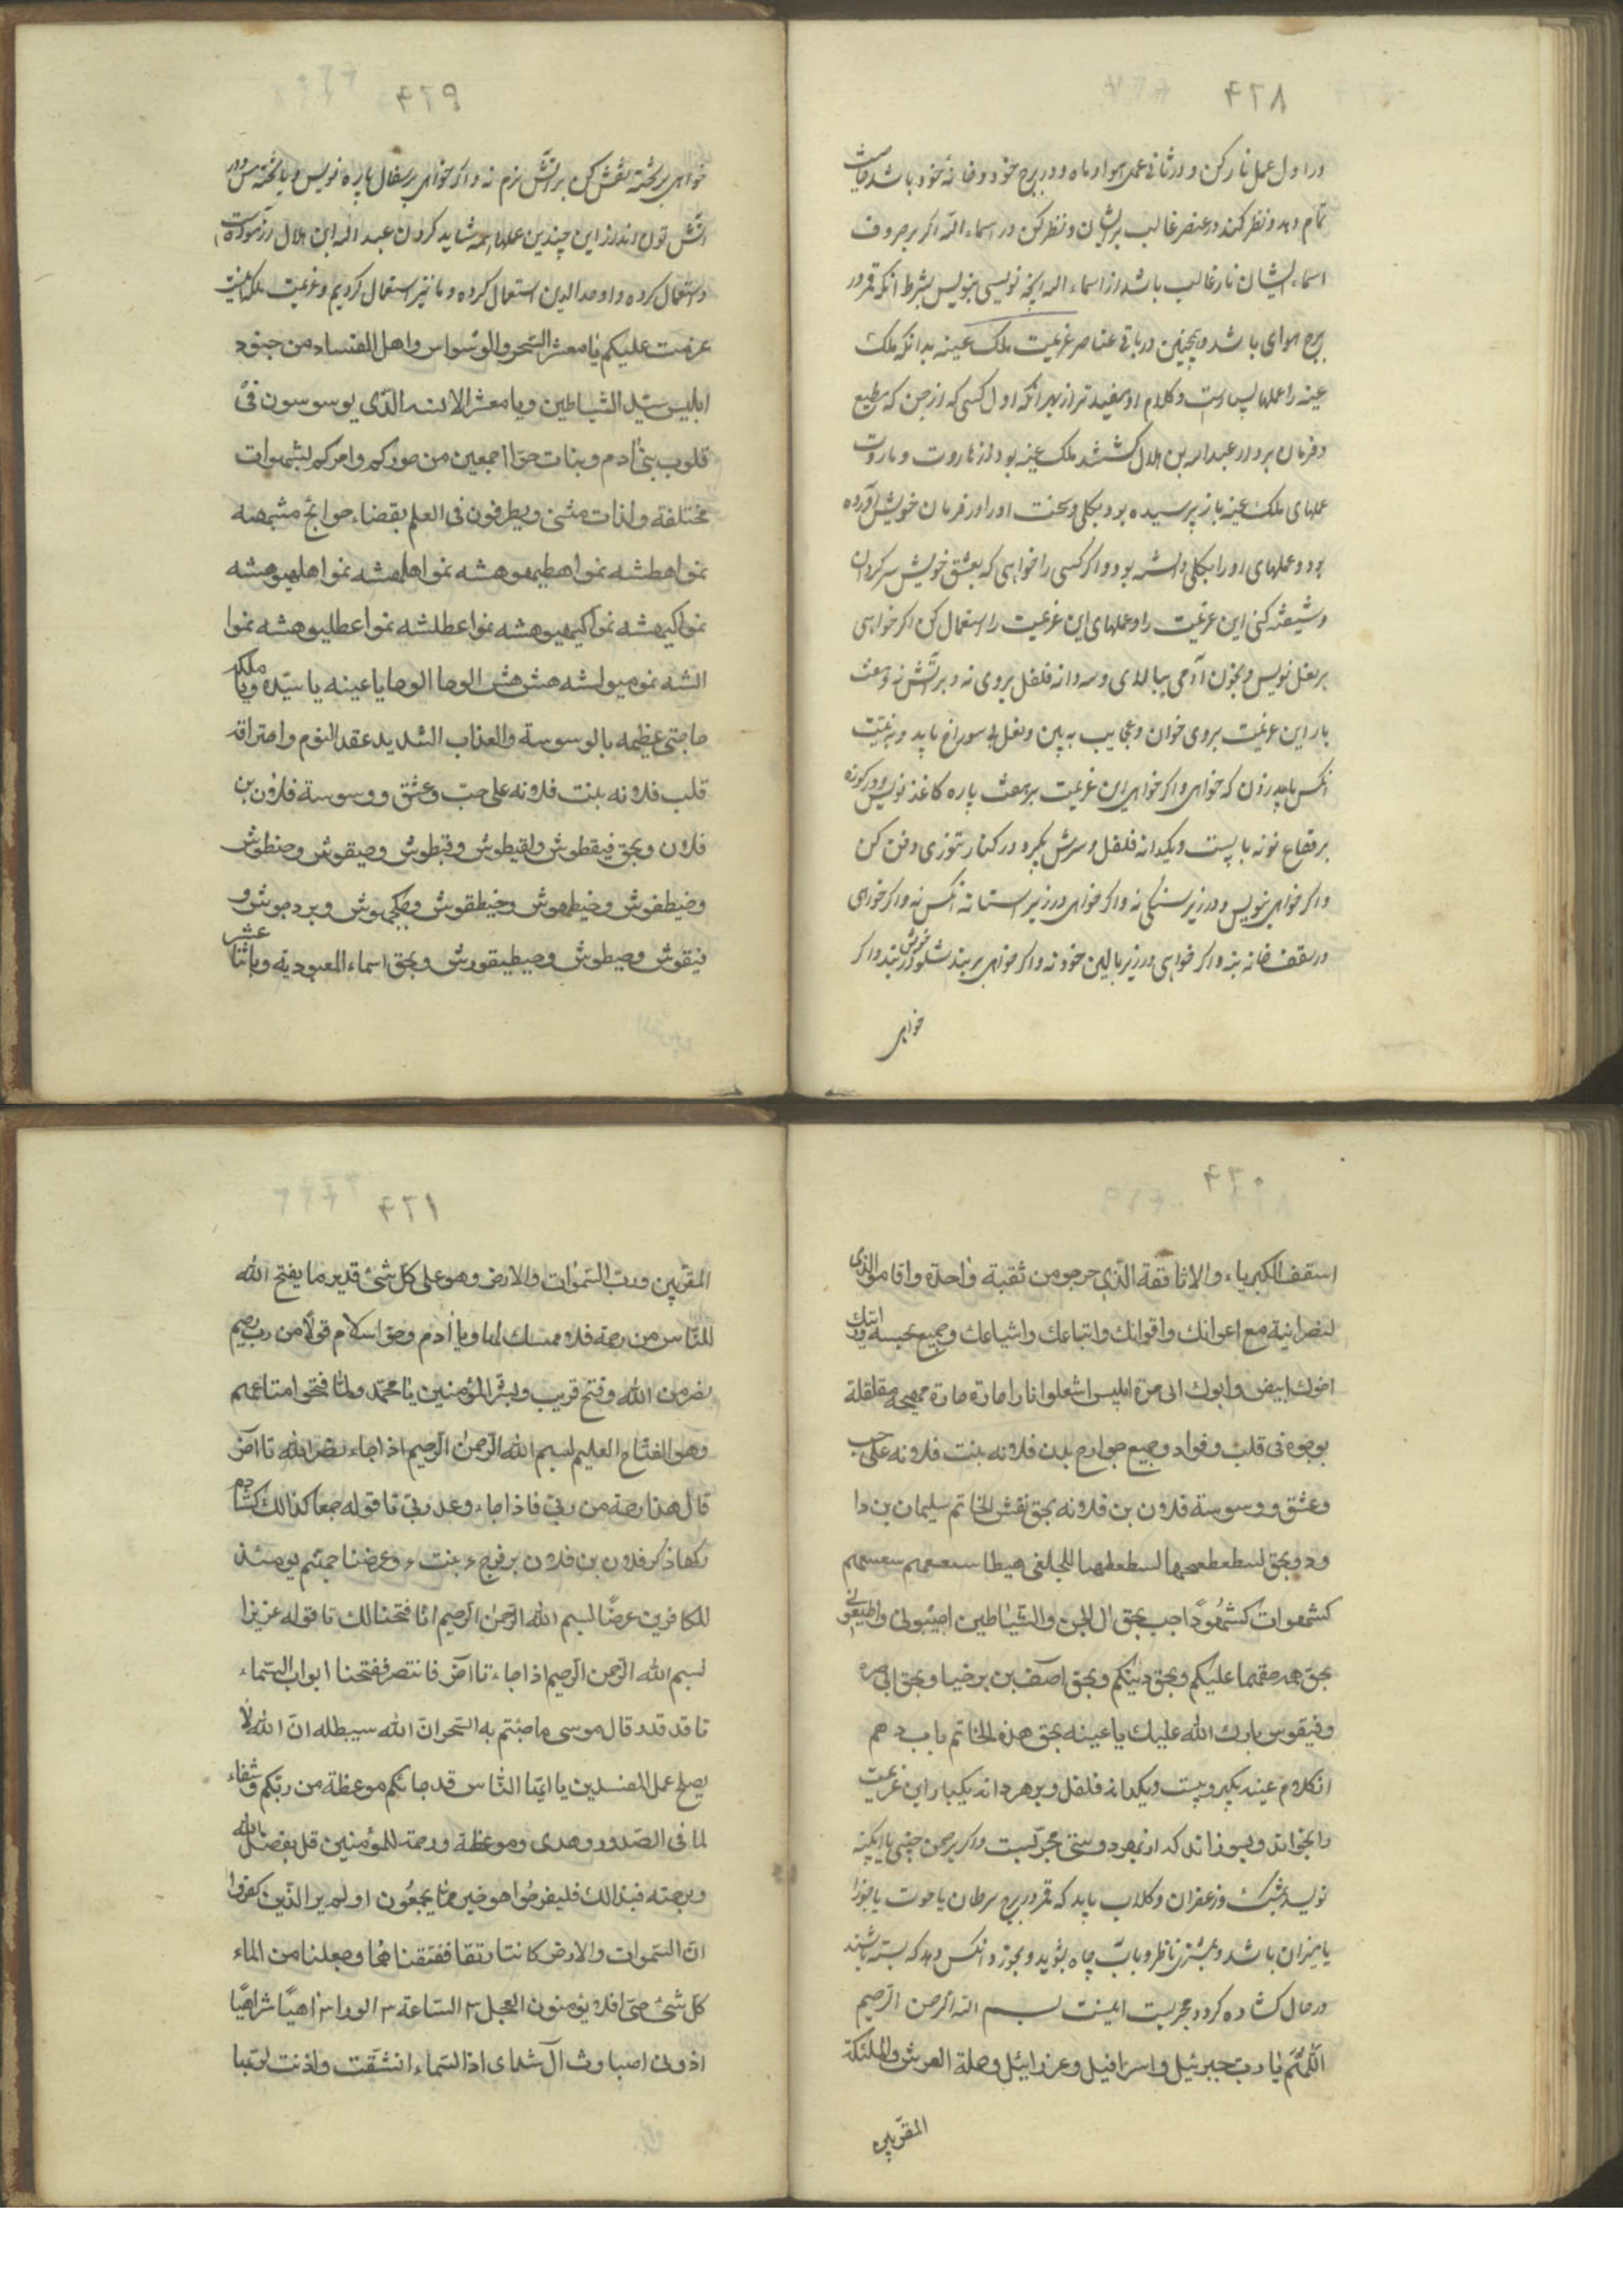 ۴۲۸
در اول عمل نار کن و در ثانی عمل هوا و ماه در برج خود و خانه خود باشد
تمام دهد و نظر کند در عنصر غالب بریشان و نظر کن در اسماء الله اکر بر حروف
اسماء ایشان نار غالب باشد از اسماء الله آنچه نویسی بنویس بشرط آنکه قمر در
برج هوای باشد و همچنین در باقی عناصر عزیمت ملک عینه بدانکه ملک
عینه را عملها بس است و کلام او مفیدتر از بهر آنکه اول کسی که از جن که مطیع
و فرمان بردار عبد الله بن هلال کشتند ملک عینه بود از هاروت و ماروت
عملهای ملک عینه باز پرسیده بود بکلی و سخت او را در فرمان خویش آورده
بود و عملهای او را بکلی دانسته بود و اکر کسی را خواهی که بعشق خویش سرکردان
و شیفته کنی این عزیمت را و عملهای این عزیمت را استعمال کن اکر خواهی
بر نعل نویس و بخون آدمی بیالای و سه دانه فلفل بروی نه و بر آتش نه و هفت
بار این عزیمت بروی خوان و عجایب به بین و نعل بی سوراخ باید و به نیت
آنکس باید زدن که خواهی و اکر خواهی این عزیمت بر هفت پاره کاغذ نویس و در کوزه
بر فقاع نونه با پست و یکدانه فلفل و سرش بکیر و در کنار تنوری دفن کن
و اکر خواهی بنویس و در زیر سنکی نه و اکر خواهی در زیر آستانه آنکس نه و اکر خواهی
در سقف خانه بنه و اکر خواهی در زیر بالین خود نه و اکر خواهی بر بند شلوار خویش بند و اکر
خواهی
۴۲۹
خواهی بر تخته نقش کن بر آتش نرم نه و اکر خواهی بر سفال پاره نویس و یا تخته مس و در
آتش توان انداز این چندین عملها همه شاید کردن عبد الله ابن هلال آزموده است
و استعمال کرده و اوحد الدین استعمال کرده و ما نیز استعمال کردیم و عزیمت ملک عینه اینست
عزمت علیکم یا معشر السحر والوسواس واهل الفساد من جنود
ابلیس سید الشیاطین ویا معشر الابنه الذی یوسوسون فی
قلوب بنی آدم وبنات حوا اجمعین من صورکم وامرکم لشهوات
مختلفة ولذات مثنی ویطرفون فی العلم بقضاء حوائج مشمهشه
نموا هطشه نموا هطیهوهشه نموا هلهشه نموا هلهیوهشه
نموا کیهشه نموا کیهیوهشه نموا عطلشه نموا عطلیوهشه نموا
الشه نمومیولشه هش هش الوحا الوحا یا عینه یا سیده ویا ملکه
حاجتی عظیمه بالوسوسة والعذاب الشدید عقد النوم واحتراقه
قلب فلانه بنت فلانه علی حب وعشق ووسوسة فلان بن
فلان وبحق فیقطوش ولقیطوش وقبطوش وصیقوش وحنطوش
وخیطفوش وخیطهوش وخیطقوش وهکیهوش وبردهوش و
فیقوش وصیطوش وصیطیقورش وبحق اسماء المعبودیة وباثنا عشر
۴۳۰
اسقف الکبریاء والاثاقفة الذی خرجو من ثقبة واحدة واقاموالذی
لنصرانیة مع اعوانک واقوانک واتباعک واشیاعک وجمیع
اخوک ابیض وابوک ابی مرة ابلیس اشعلوا نارا حارة حارة مهیجه مقلقلة
بوجوه فی قلب وفواد وجمیع جوارح بدن فلانه بنت فلانه علی حب
وعشق ووسوسة فلان بن فلانه بحق نقش الخاتم سلیمان بن دا
ود وبحق
کشهوات کشهوداجب بحق ال الجن والشیاطین اجیبونی واطیعونی
بحق عهد حقهما علیکم وبحق دینکم وبحق اصف بن برخیا وبحق ابی مره
وفیقوس بارک الله علیک یا عینه بحق هذه الخاتم باب دهم
از کلام عینه بکیر و پست و یکدانه فلفل و بر هر دانه یکبار این عزیمت
را بخواند و بسوزاند که از بهر دوستی مجربست و اکر بر صحن چینی یا ابکینه
نویسد بمشک و زعفران و کلاب باید که قمر در برج سرطان یا حوت یا جوزا
یا میزان باشد و بمشتری ناظر و بآب چاه بشوید و بخورد آنکس دهد که بسته باشند
در حال کشاده کردد مجربست اینست بسم الله الرحمن الرحیم
اللهم یا رب جبرئیل واسرافیل وعزرائیل وحملة العرش والملئکة
المقربین
۴۳۱
المقربین ورب السموات والارض وهو علی کل شئ قدیر ما یفتح الله
للناس من رحمة فلا ممسک لها ویا آدم وحق اسلام قولا من رب رحیم
نصر من الله وفتح قریب وبشر المؤمنین یا محمد ولما فتحوا متاعهم
وهو الفتاح العلیم بسم الله الرحمن الرحیم اذا جاء نصر الله تا آخر
قال هذا رحمة من ربی فاذا جاء وعد ربی تا قوله جمعا کذالک کشادم
نکهاذکر فلان بن فلان بر فرج بنت وعرضنا جهنم یومئذ
للکافرین عرضا بسم الله الرحمن الرحیم انا فتحنا لک تا قوله عزیزا
بسم الله الرحمن الرحیم اذا جاء تا آخر فانتصر ففتحنا ابواب السماء
تا قد قدر قال موسی ما جئتم به السحر ان الله سیبطله ان الله لا
یصلح عمل المفسدین یا ایها الناس قد جائکم موعظة من ربکم وشفاء
لما فی الصدور وهدی وموعظة ورحمة للمؤمنین قل بفضل الله
وبرحمته فبذالک فلیفرحوا هو خیر مما یجمعون اولم یر الذین کفروا
ان السموات والارض کانتا رتقا ففتقنا هما وجعلنا من الماء
کل شئ حی افلا یؤمنون العجل ۳ الساعة ۳ الوحا ۳ اهیا شراهیا
اذونی اصباوث آل شدای اذا السماء انشقت واذنت لربها